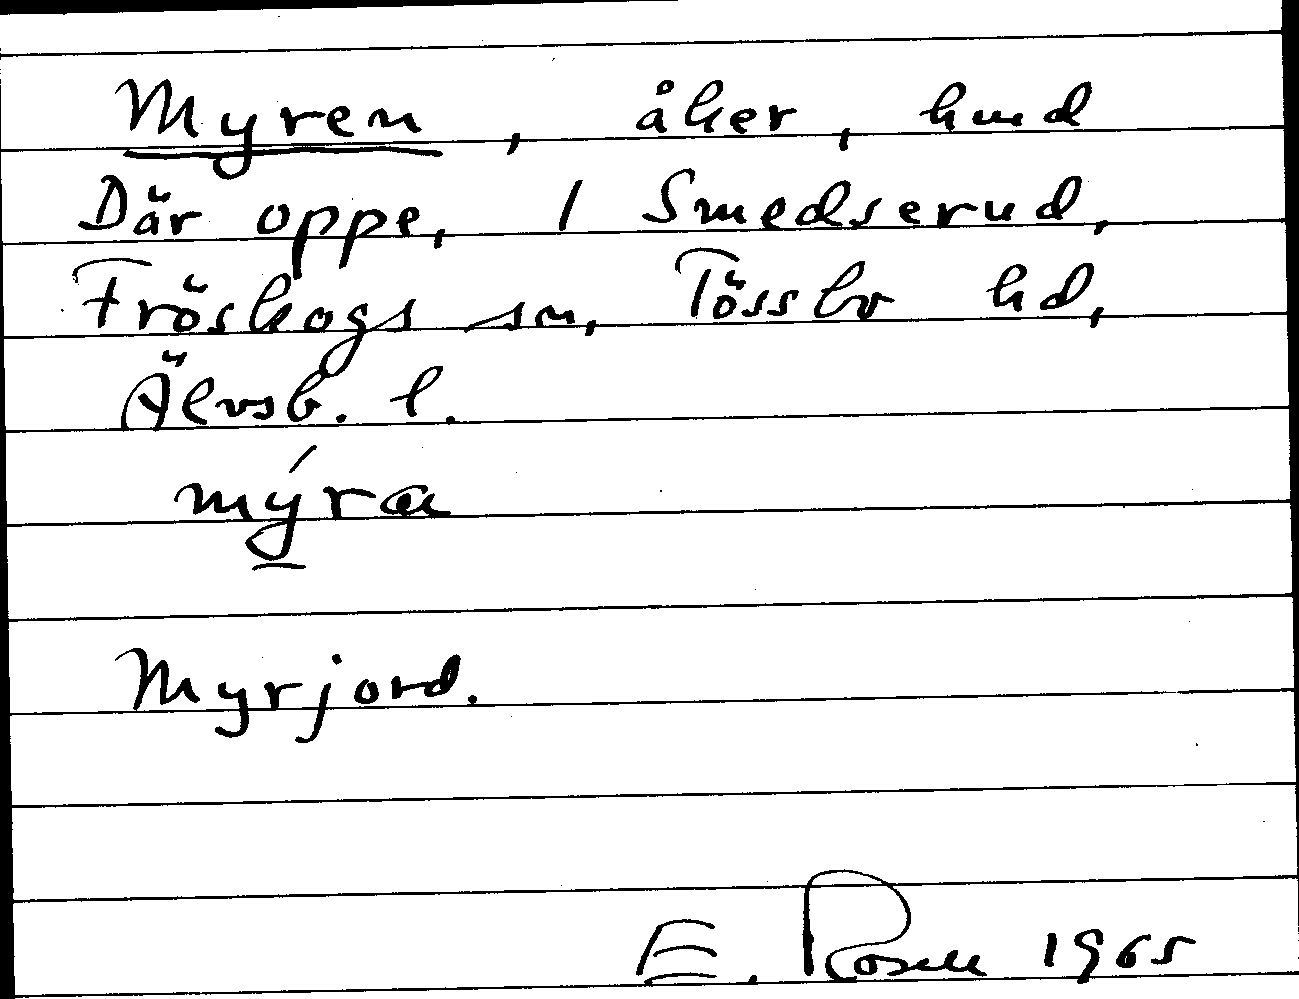 Myren, åker, hmd
Där oppe, 1 Smedserud,
Fröskogs sn, Tössbo hd,
Älvsb. l.
mýra
Myrjord.
E. Rosell 1965